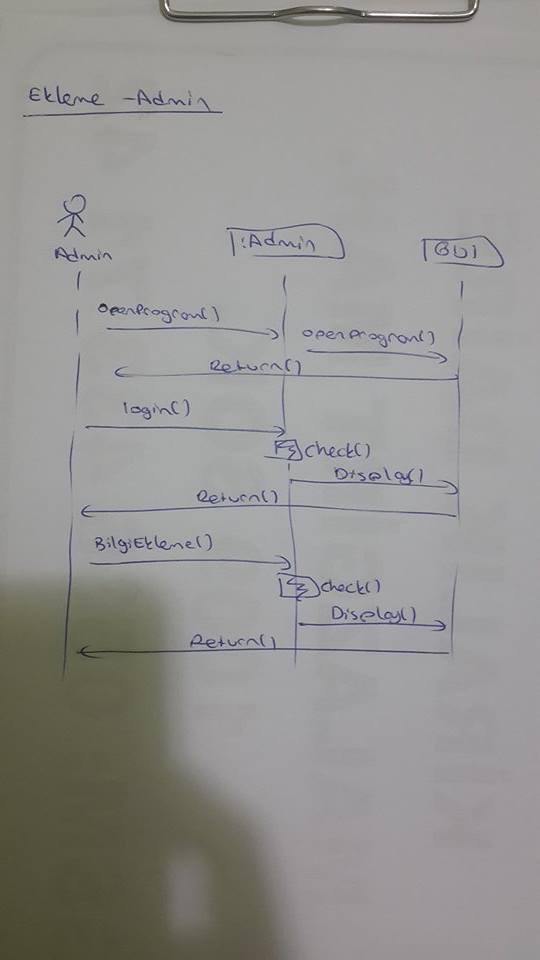 Ekleme -Admin
Admin
:Admin
GUI
OpenProgram()
OpenProgram()
Return()
login()
check()
Display()
Return()
BilgiEkleme()
check()
Display()
Return()